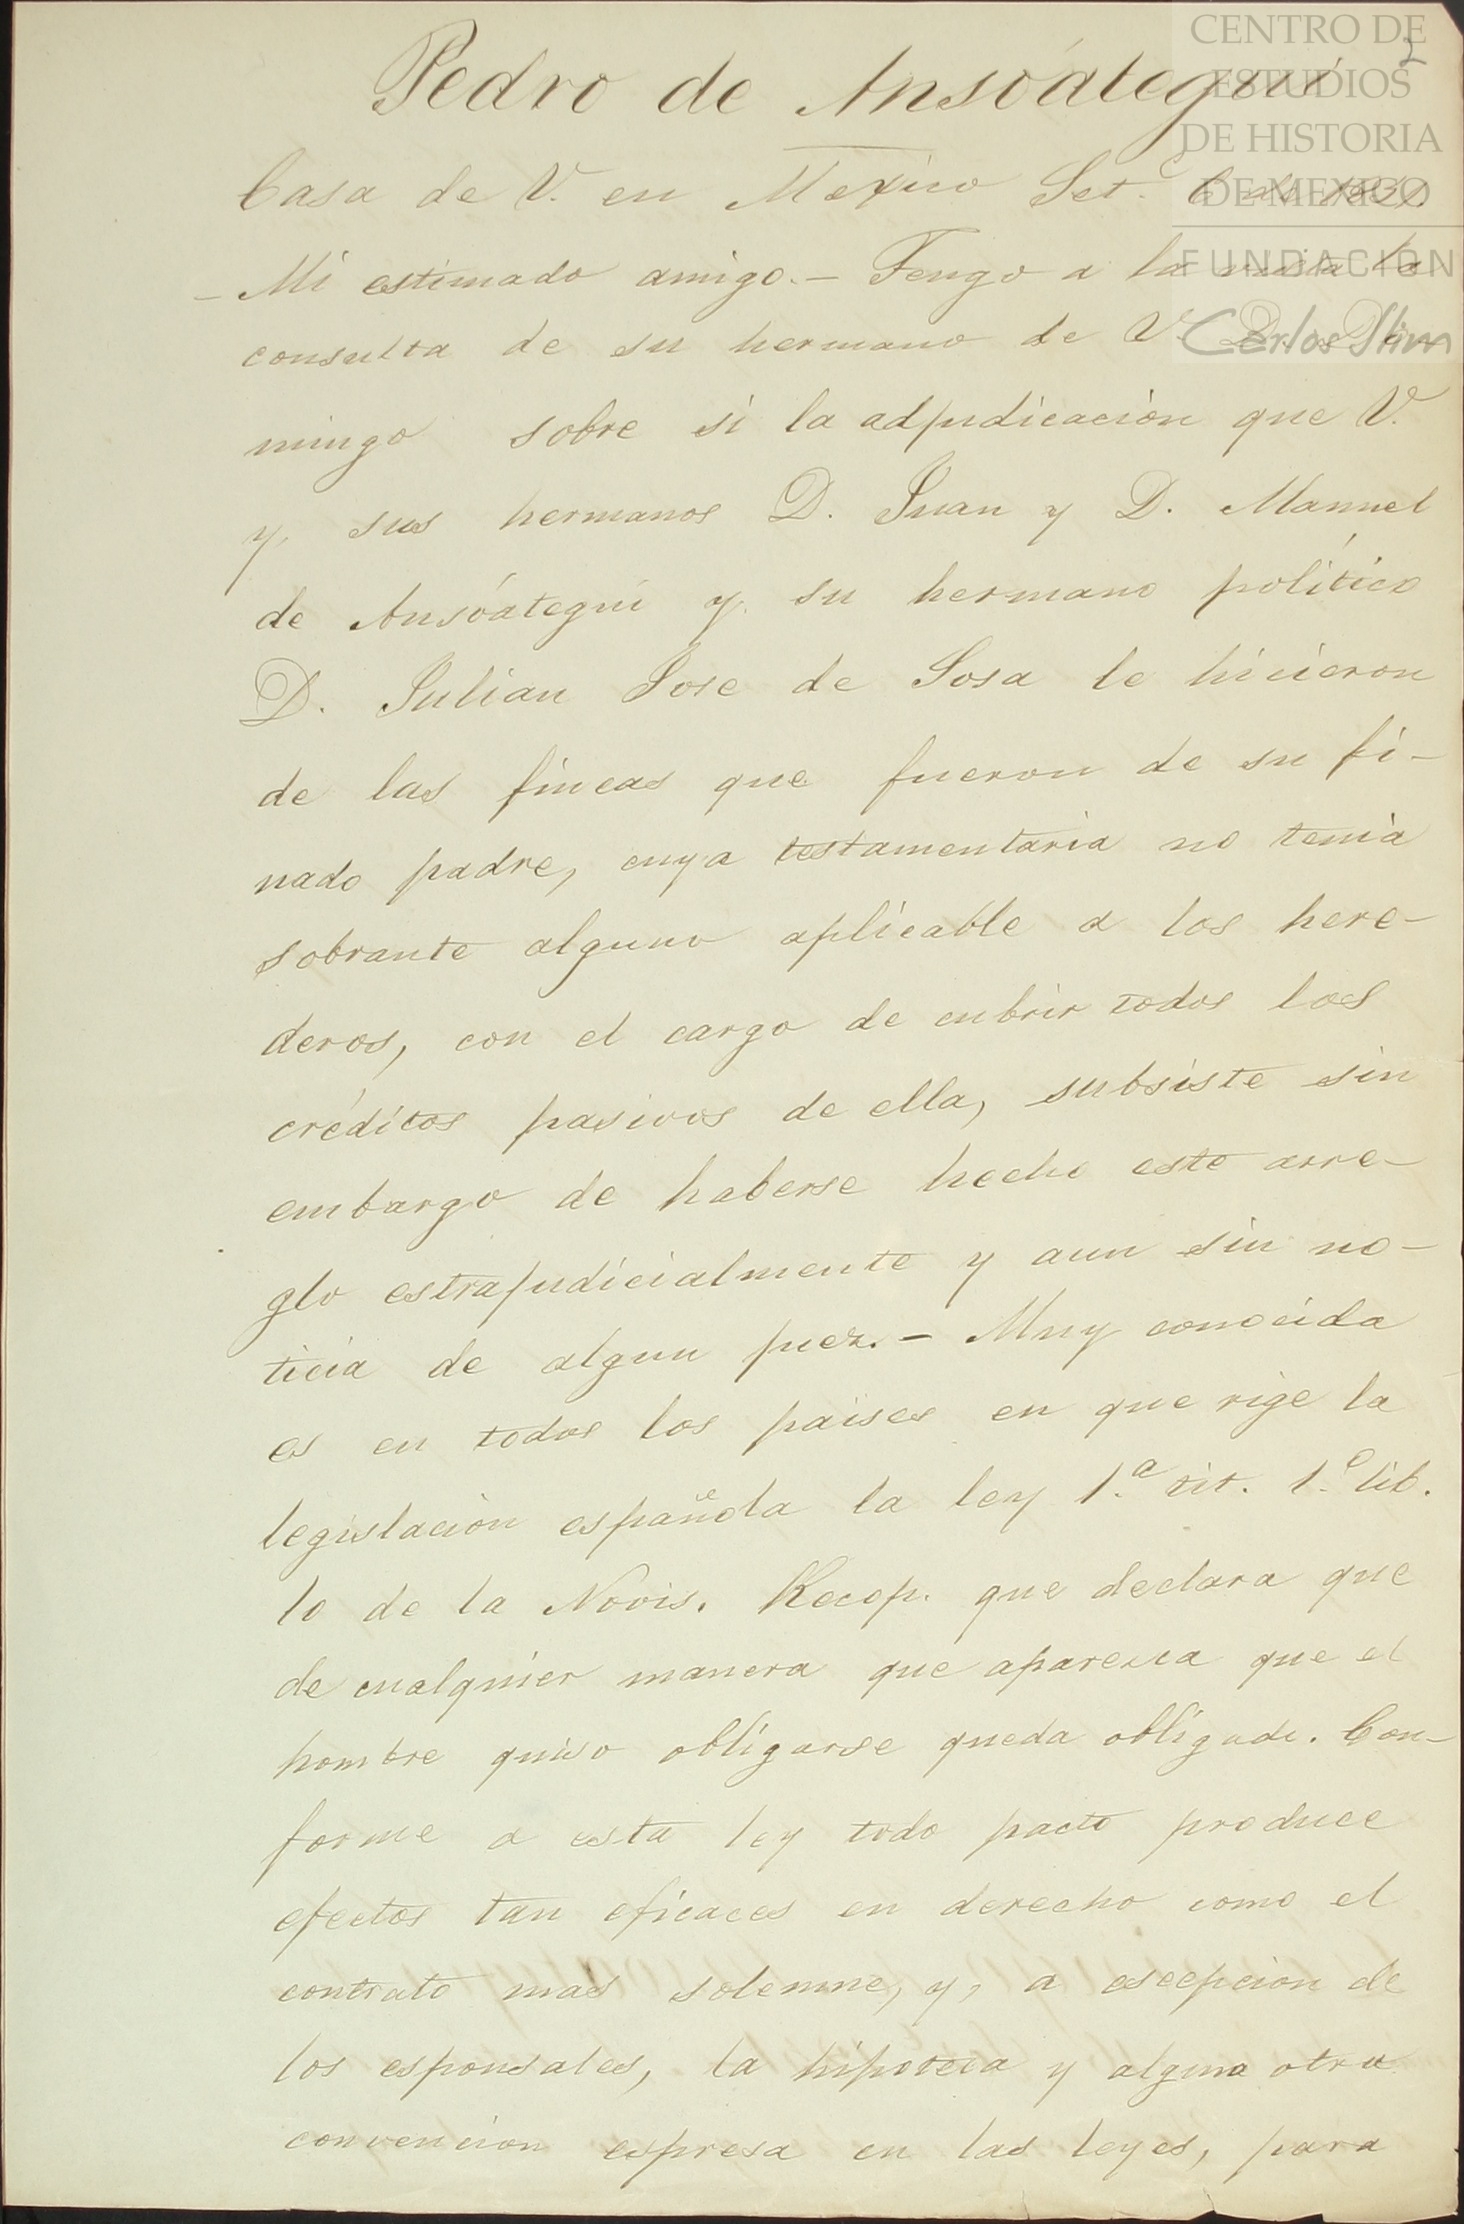 CENTRO DE
ESTUDIOS
DE HISTORIA
DE MEXICO
FUNDACION
Carlos Slim
2
Pedro de Ansóategui
Casa de V. en Mexico Set.e 6
- Mi estimado amigo. - Tengo a la vista la
consulta de su hermano de V. D. Do-
mingo sobre si la adjudicacion que V.
y sus hermanos D. Juan y D. Manuel
de Ansóategui y su hermano político
D. Julian Jose de Sosa le hicieron
de las fincas que fueron de su fi-
nado padre, cuya testamentaria no tenia
sobrante alguno aplicable a los here-
deros, con el cargo de cubrir todos los
créditos pasivos de ella, subsiste sin
embargo de haberse hecho este arre-
glo estrajudicialmente y aun sin no-
ticia de algun juez. - Muy conocida
es en todos los paises en que rige la
legislacion española la ley 1.a tit. 1.o lib.
10 de la Novis. Recop. que declara que
de cualquier manera que aparezca que el
hombre quiso obligarse queda obligado. Con-
forme a esta ley todo pacto produce
efectos tan eficaces en derecho como el
contrato mas solemne, y, a escepcion de
los esponsales, la hipoteca y alguna otra
convencion espresa en las leyes, para